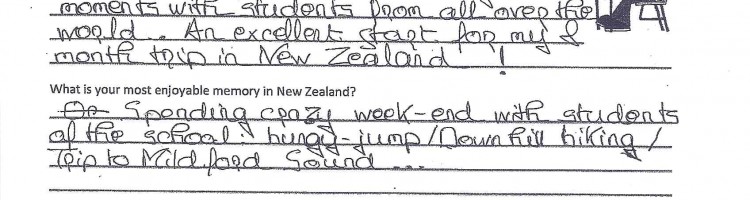 moments with students from all over the
world. An excellent start for my 8
month trip in New Zealand !
What is your most enjoyable memory in New Zealand?
Spending crazy week-end with students
of the school: bungy-jump/Down hill biking/
Trip to Mildford Sound ...